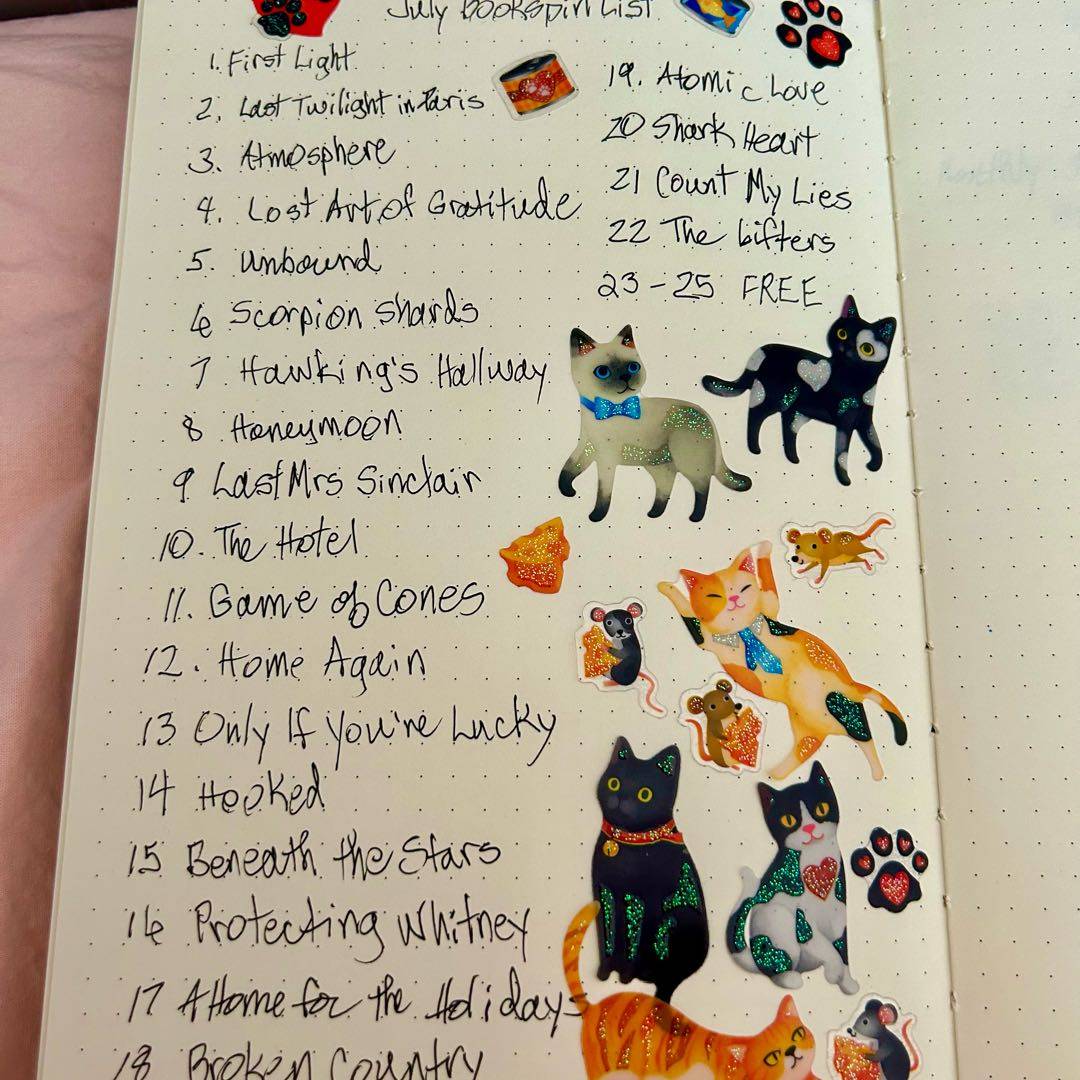 July Bookspin List
1. First Light
2. Last Twilight in Paris
3. Atmosphere
4. Lost Art of Gratitude
5. Unbound
6 Scorpion Shards
7 Hawking's Hallway
8 Honeymoon
9 Last Mrs Sinclair
10. The Hotel
11. Game of Cones
12. Home Again
13 Only If You're Lucky
14 Hooked
15 Beneath the Stars
16 Protecting Whitney
17 A Home for the Holidays
18 Broken Country
19. Atomic Love
20 Shark Heart
21 Count My Lies
22 The Lifters
23-25 FREE